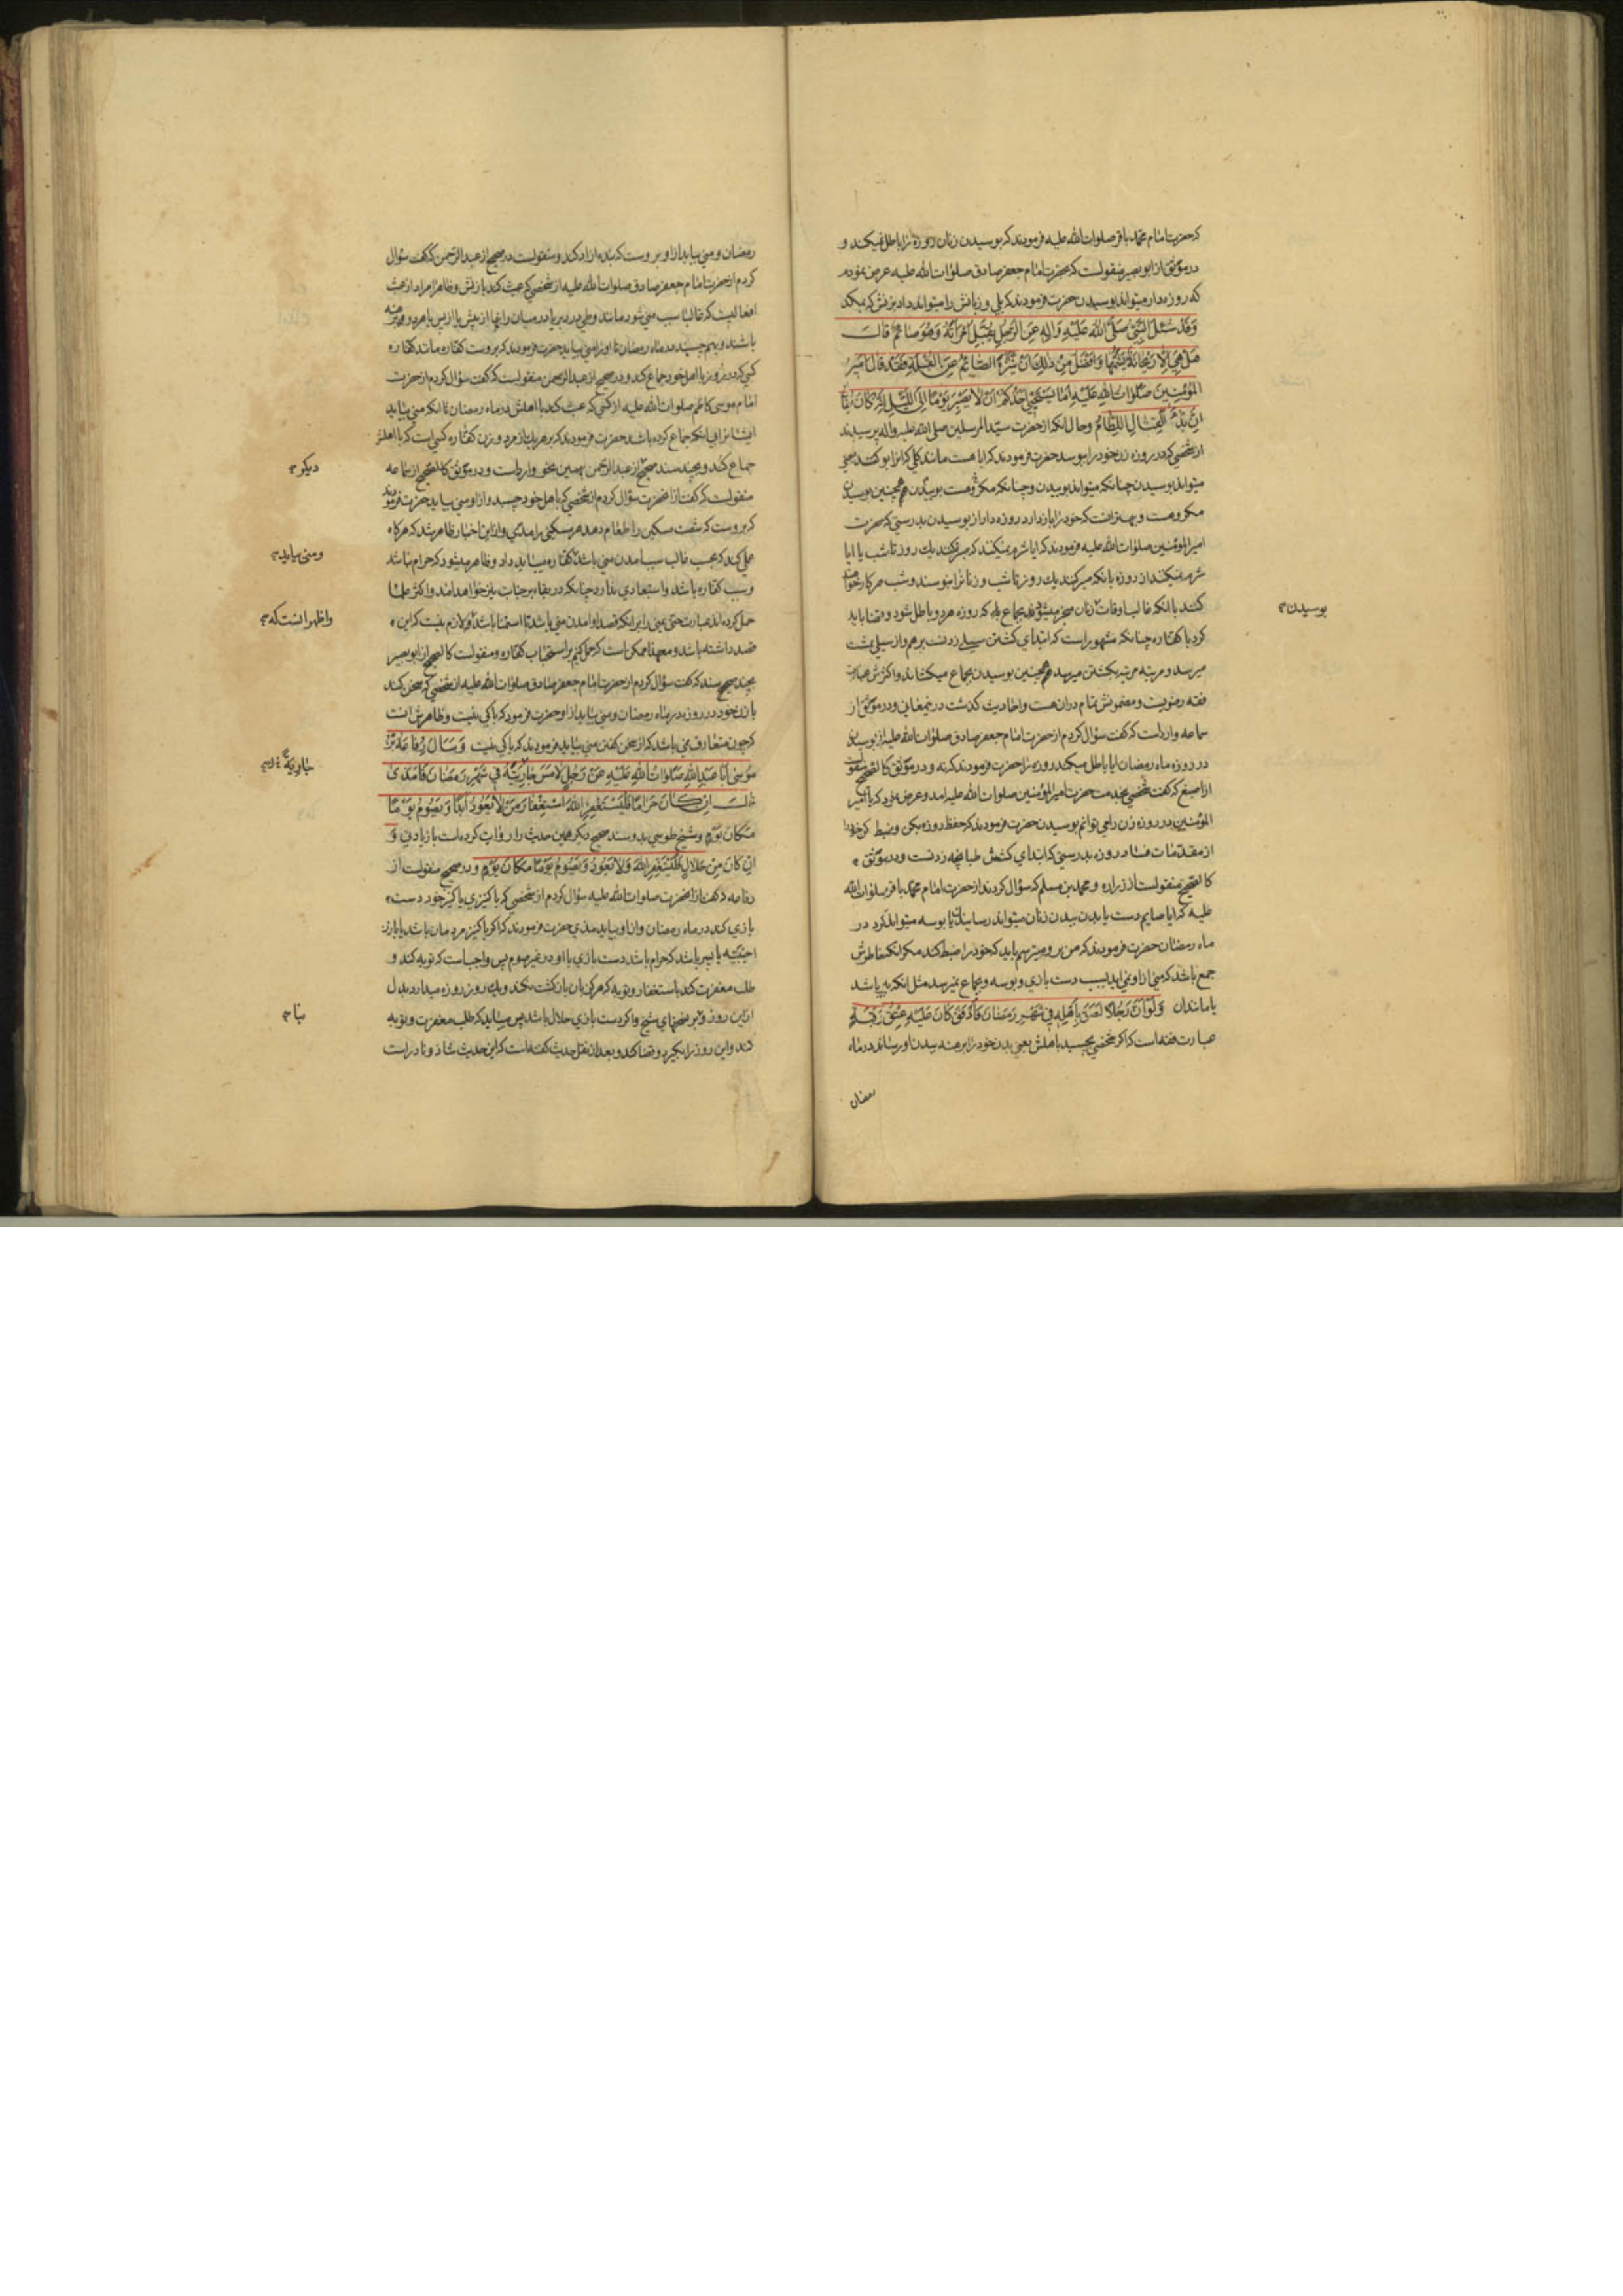 که حضرت امام محمد باقر صلوات الله علیه فرمودند که بوسیدن زنان روزه را باطل نمیکند و
در موثق از ابو بصیر منقولست که بحضرت امام جعفر صادق صلوات الله علیه عرض نمودم
که روزه دار میتواند بوسیدن حضرت فرمودند که بلی و زبانش را میتواند داد بزنش که بمکد
وَقَدْ سُئِلَ النَّبِيُّ صَلَّى اللهُ عَلَيْهِ وَالِهِ عَنِ الرَّجُلِ يُقَبِّلُ امْرَأَتَهُ وَهُوَ صَائِمٌ قَالَ
هَلْ هِيَ اِلَّا رَيْحَانَةٌ يَشَمُّهَا وَاَفْضَلُ مِنْ ذٰلِكَ اَنْ يَتَنَزَّهَ الصَّائِمُ عَنِ القُبْلَةِ فَقَدْ قَالَ اَمِيرُ
المُؤْمِنِينَ صَلَوَاتُ اللهِ عَلَيْهِ اَمَا يَسْتَحْيِي اَحَدُكُمْ اَنْ لَا يَصْبِرَ يَوْمًا اِلَى اللَّيْلِ اِنَّهُ كَانَ يُقَالُ
اِنَّ بَدْءَ القِتَالِ اللِّطَامُ و حال انکه از حضرت سید المرسلین صلی الله علیه و اله پرسیدند
از شخصی که در روزه زن خود را بوسد حضرت فرمودند که ایا هست مانند گلی که انرا بو کند یعنی
میتواند بوسیدن چنانکه میتواند بوییدن و چنانکه مکروهست بوییدن همچنین بوسیدن
مکروهست و بهتر انست که خود را باز دارد روزه دار از بوسیدن بدرستی که حضرت
امیر المؤمنین صلوات الله علیه فرمودند که ایا شرم نمیکنند که صبر نمیکنند یک روز تا شب یا ایا
شرم نمیکنند از روزه با انکه صبر کنند یک روز تا شب و زنانرا نبوسند و شب هر کار خواهند
کنند با انکه غالب اوقات زنان منجر میشود بجماع که روزه هر دو باطل شود و قضا باید
کرد با کفاره چنانکه مشهور است که ابتدای کشتن سیلی زدنست بر هم و از سیلی بمشت
میرسد و مرتبه مرتبه بکشتن میرسد همچنین بوسیدن بجماع میکشاند و اکثرش عبارت
فقه رضویست و مضمونش تمام در ان هست و احادیث گذشت در نمیغانی و در موثق از
سماعه وارد است که گفت سؤال کردم از حضرت امام جعفر صادق صلوات الله علیه از بوسیدن
در روزه ماه رمضان ایا باطل میکند روزه را حضرت فرمودند که نه و در موثق کالصحیح منقولست
از اصبغ که گفت شخصی بخدمت حضرت امیر المؤمنین صلوات الله علیه امد و عرض نمود که یا امیر
المؤمنین در روزه زن را می توانم بوسیدن حضرت فرمودند که حفظ روزه بکن و ضبط کن خود را
از مقدمات فساد روزه بدرستی که ابتدای کشش طبانچه زدنست و در موثق
کالصحیح منقولست از زراره و محمد بن مسلم که سؤال کردند از حضرت امام محمد باقر صلوات الله
علیه که ایا صایم دست یا بدن ببدن زنان میتواند رسانیدن یا بوسه میتواند کرد در
ماه رمضان حضرت فرمودند که من بر او میترسم باید که خود را ضبط کند مگر انکه خاطرش
جمع باشد که منی از او نمی اید بسبب دست بازی و بوسه و بجماع نمیرسد مثل انکه پیر باشد
یا مانند ان وَلَوْ اَنَّ رَجُلًا لَصِقَ بِاَهْلِهِ فِي شَهْرِ رَمَضَانَ فَاَدْفَقَ كَانَ عَلَيْهِ عِتْقُ رَقَبَةٍ
عبارت فقه است که اگر شخصی بچسبد باهلش یعنی بدن خود را برهنه ببدن او رساند در ماه
رمضان
بوسیدن
رمضان و منی بیاید از او بر وست که بنده ازاد کند و منقولست در صحیح از عبد الرحمن که گفت سؤال
کردم از حضرت امام جعفر صادق صلوات الله علیه از شخصی که عبث کند با زنش و ظاهرا مراد از عبث
افعالیست که غالبا سبب منی شود مانند وطی در دبر یا در میان رانها از پیش یا از پس یا هر دو برهنه
باشند و بهم چسبند در ماه رمضان تا او را منی بیاید حضرت فرمودند که بر وست کفاره مانند کفاره
کسی که در روز با اهل خود جماع کند و در صحیح از عبد الرحمن منقولست که گفت سؤال کردم از حضرت
امام موسی کاظم صلوات الله علیه از کسی که عبث کند با اهلش در ماه رمضان تا انکه منی بیاید
ایشانرا بی انکه جماع کرده باشد حضرت فرمودند که بر هر یک از مرد و زن کفاره کسی است که با اهلش
جماع کند و بچند سند صحیح از عبد الرحمن بهمین نحو وارد است و در موثق کالصحیح از سماعه
منقولست که گفت از انحضرت سؤال کردم از شخصی که باهل خود چسبد و از او منی بیاید حضرت فرمودند
که بر وست که شصت مسکین را طعام دهد هر مسکینی را مدی و از این اخبار ظاهر شد که هر گاه
عملی کند که بحسب غالب سبب امدن منی باشد کفاره میباید داد و ظاهر میشود که حرام نباشد
و سبب کفاره باشد و استبعادی ندارد چنانکه در بقاء بر جنابت نیز خواهد امد و اکثر علما
حمل کرده اند عبارت حتی یمنی را بر انکه قصد او امدن منی باشد تا استمنا باشد و لازم نیست که این
قصد داشته باشد و معهذا ممکن است که حمل کنیم بر استحباب کفاره و منقولست کالصحیح از ابو بصیر
بچند صحیح سند که گفت سؤال کردم از حضرت امام جعفر صادق صلوات الله علیه از شخصی که سخن کند
با زن خود در روز در ماه رمضان و منی بیاید از او حضرت فرمود که باکی نیست و ظاهرش انست
که چون متعارف نمی باشد که از سخن گفتن منی بیاید فرمودند که باکی نیست وَسَاَلَ رِفَاعَةُ بْنُ
مُوسَى اَبَا عَبْدِ اللهِ صَلَوَاتُ اللهِ عَلَيْهِ عَنْ رَجُلٍ لَامَسَ جَارِيَتَهُ فِي شَهْرِ رَمَضَانَ فَاَمْذَى
قَالَ اِنْ كَانَ حَرَامًا فَلْيَسْتَغْفِرِ اللهَ اسْتِغْفَارَ مَنْ لَا يَعُودُ اَبَدًا وَيَصُومُ يَوْمًا
مَكَانَ يَوْمٍ و شیخ طوسی بدو سند صحیح دیگر همین حدیث را روایت کرده است با زیادتی وَ
اِنْ كَانَ مِنْ حَلَالٍ فَلْيَسْتَغْفِرِ اللهَ وَلَا يَعُودُ وَيَصُومُ يَوْمًا مَكَانَ يَوْمٍ و در صحیح منقولست از
رفاعه که گفت از انحضرت صلوات الله علیه سؤال کردم از شخصی که با کنیزی یا کنیز خود دست
بازی کند در ماه رمضان و از او بیاید مذی حضرت فرمودند که اگر با کنیز مردمان باشد یا با زن
اجنبیه یا پسر باشد که حرام باشد دست بازی با او در غیر صوم پس واجب است که توبه کند و
طلب مغفرت کند باستغفار و توبه که هرگز بان بازگشت نکند و یک روز روزه میدارد بدل
از این روز و بر نسخهای شیخ و اگر دست بازی حلال باشد پس میباید که طلب مغفرت و توبه
کند و این روز را بگیرد و قضا کند و بعد از نقل حدیث گفته است که این حدیث شاذ و نادر است
دیگر
و منی بیاید
و اظهر انست که
جَارِيَةً
بنا